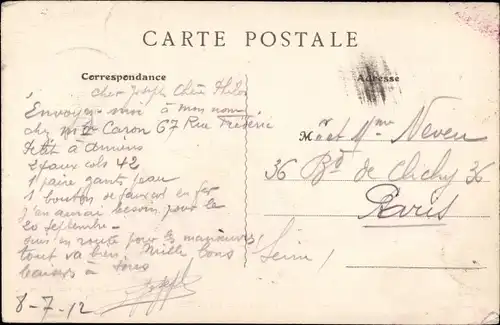 CARTE POSTALE
Correspondance
Adresse
cher Joseph Chère
Envoyez-moi à mon nom
chez Mr Caron 67 Rue Frédéric
Petit à Amiens
2 faux cols 42
1 paire gants peau
1 bouton de faux col en fer
j'en aurai besoin pour le
20 septembre -
suis en route pour les manœuvres
tout va bien. Mille bons
baisers à tous
Joseph
8-7-12
Mr et Mme Neveu
36 Bd de Clichy 36
Paris
Seine